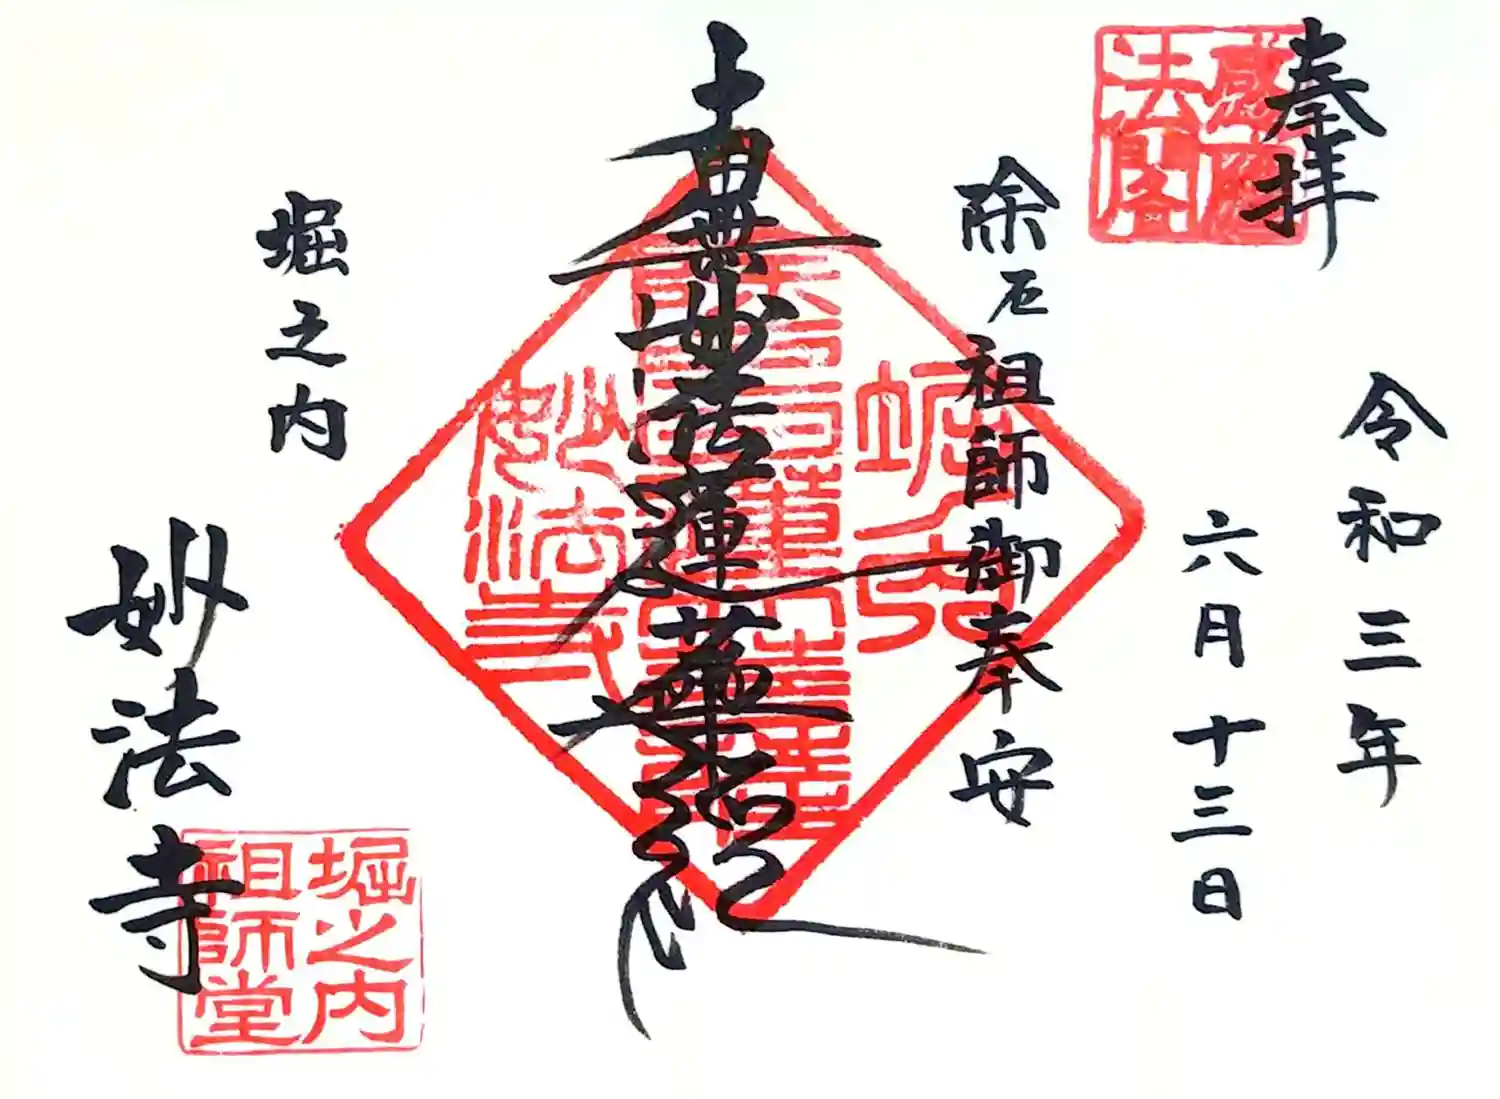 奉拝
令和三年
六月十三日
除厄祖師御奉安
南無妙法蓮華経
堀之内
妙法寺
法閣
堀之内
妙法寺
堀之内
祖師堂